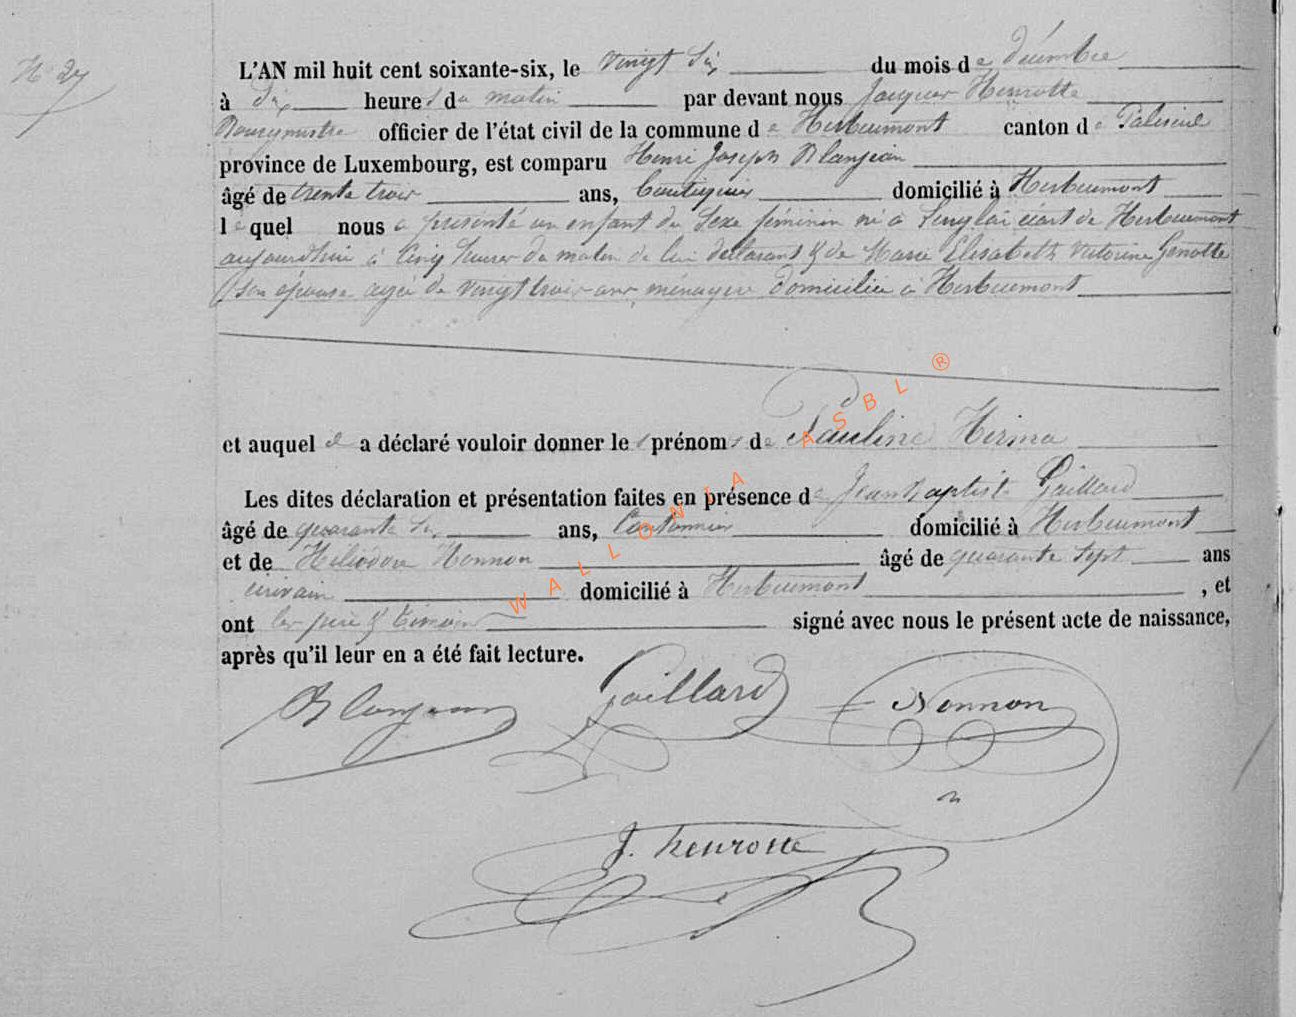 N° 27
L'AN mil huit cent soixante-six, le vingt six du mois de décembre
à dix heures du matin par devant nous Jacques Henrotte
Bourgmestre officier de l'état civil de la commune de Herbeumont canton de Paliseul
province de Luxembourg, est comparu Henri Joseph Blanjean
âgé de trente trois ans, domicilié à Herbeumont
lequel nous a présenté un enfant du sexe féminin né à écart de Herbeumont
aujourdhui à cinq heures du matin de lui déclarant & de Marie Elisabeth Victorine Genotte
son épouse agée de vingt trois ans ménagère domiciliée à Herbeumont
et auquel il a déclaré vouloir donner les prénoms de Pauline Hirma
Les dites déclaration et présentation faites en présence de Jean Baptiste Gaillard
âgé de quarante six ans, Cantonnier domicilié à Herbeumont
et de Héliodore Nonnon âgé de quarante sept ans
écrivain domicilié à Herbeumont , et
ont les père & témoins signé avec nous le présent acte de naissance,
après qu'il leur en a été fait lecture.
Blanjean Gaillard Nonnon
J. henrotte
WALLONIA ASBL ®